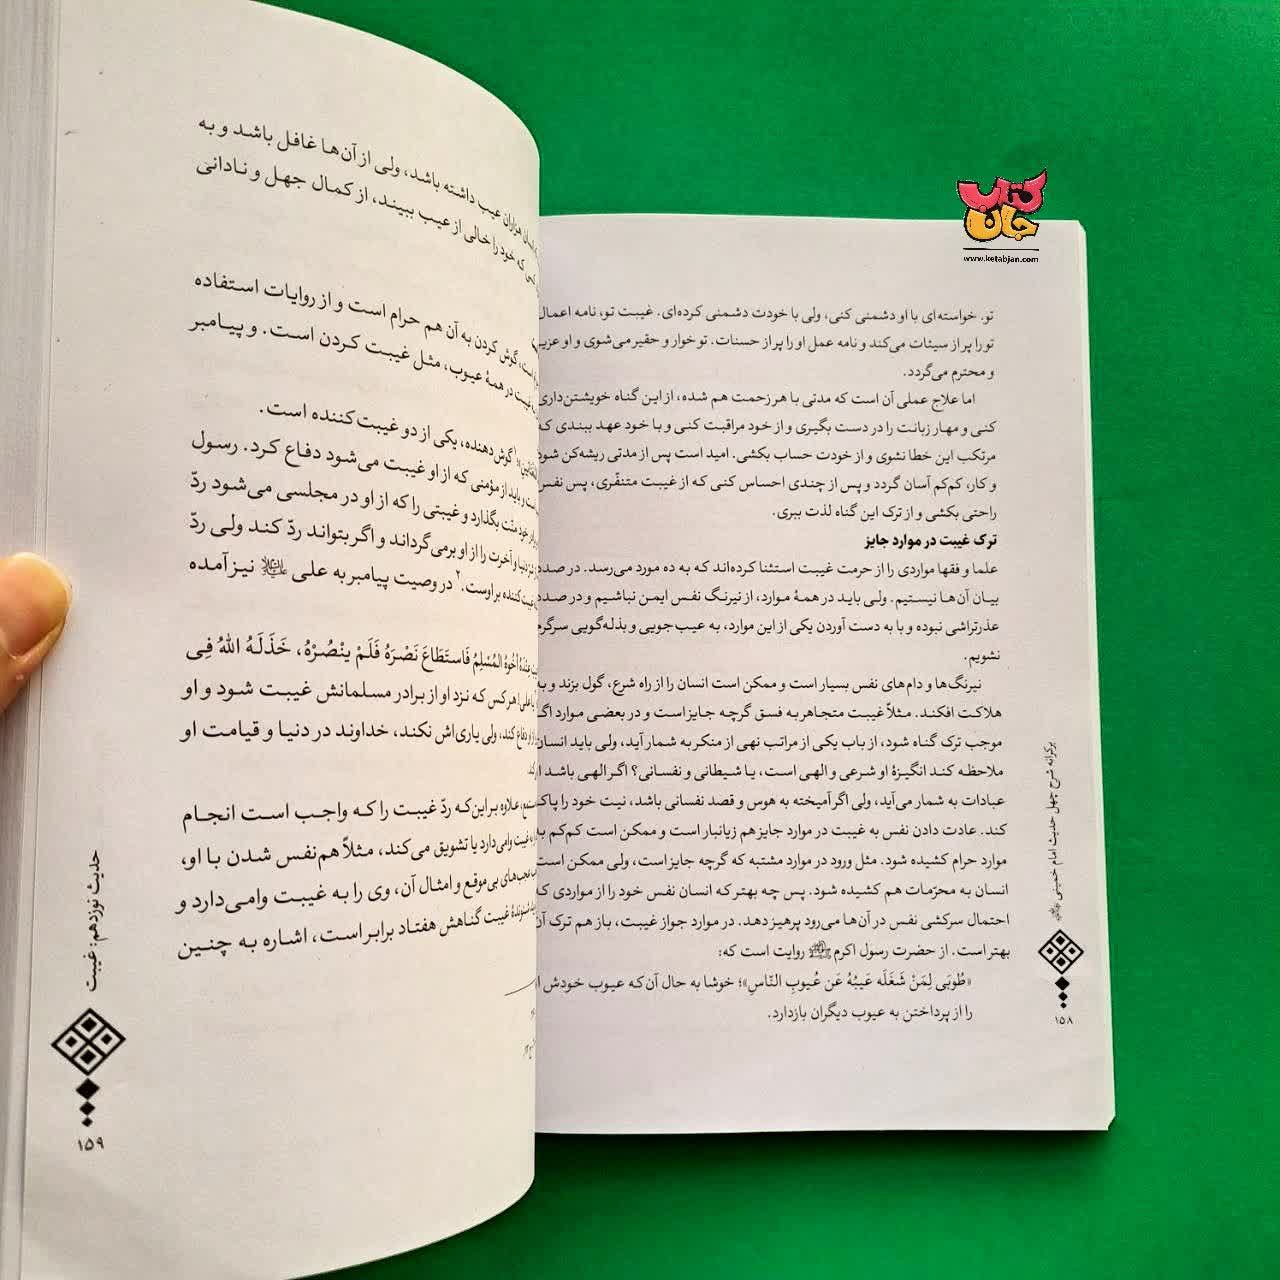 کتاب
جان
www.ketabjan.com
تو. خواسته‌ای با او دشمنی کنی، ولی با خودت دشمنی کرده‌ای. غیبت تو، نامه اعمال
تو را پر از سیئات می‌کند و نامه عمل او را پر از حسنات. تو خوار و حقیر می‌شوی و او عزیز
و محترم می‌گردد.
اما علاج عملی آن است که مدتی با هر زحمت هم شده، از این گناه خویشتن‌داری
کنی و مهار زبانت را در دست بگیری و از خود مراقبت کنی و با خود عهد ببندی که
مرتکب این خطا نشوی و از خودت حساب بکشی. امید است پس از مدتی ریشه‌کن شود
و کار، کم‌کم آسان گردد و پس از چندی احساس کنی که از غیبت متنفّری، پس نفس
راحتی بکشی و از ترک این گناه لذت ببری.
ترک غیبت در موارد جایز
علما و فقها مواردی را از حرمت غیبت استثنا کرده‌اند که به ده مورد می‌رسد. در صدد
بیان آن‌ها نیستیم. ولی باید در همهٔ موارد، از نیرنگ نفس ایمن نباشیم و در صدد
عذرتراشی نبوده و با به دست آوردن یکی از این موارد، به عیب‌جویی و بذله‌گویی سرگرم
نشویم.
نیرنگ‌ها و دام‌های نفس بسیار است و ممکن است انسان را از راه شرع، گول بزند و به
هلاکت افکند. مثلاً غیبت متجاهر به فسق گرچه جایز است و در بعضی موارد اگر
موجب ترک گناه شود، از باب یکی از مراتب نهی از منکر به شمار آید، ولی باید انسان
ملاحظه کند انگیزهٔ او شرعی و الهی است، یا شیطانی و نفسانی؟ اگر الهی باشد از
عبادات به شمار می‌آید، ولی اگر آمیخته به هوس و قصد نفسانی باشد، نیت خود را پاک
کند. عادت دادن نفس به غیبت در موارد جایز هم زیانبار است و ممکن است کم‌کم به
موارد حرام کشیده شود. مثل ورود در موارد مشتبه که گرچه جایز است، ولی ممکن است
انسان به محرّمات هم کشیده شود. پس چه بهتر که انسان نفس خود را از مواردی که
احتمال سرکشی نفس در آن‌ها می‌رود پرهیز دهد. در موارد جواز غیبت، باز هم ترک آن
بهتر است. از حضرت رسول اکرم ﷺ روایت است که:
«طُوبَی لِمَنْ شَغَلَه عَیبُهُ عَن عُیوبِ النّاسِ»؛ خوشا به حال آن‌که عیوب خودش
را از پرداختن به عیوب دیگران بازدارد.
برکرانه شرح چهل حدیث امام خمینی
۱۵۸
هزاران عیب داشته باشد، ولی از آن‌ها غافل باشد و به
که خود را خالی از عیب ببیند، از کمال جهل و نادانی
گوش کردن به آن هم حرام است و از روایات استفاده
غیبت در همهٔ عیوب، مثل غیبت کردن است. و پیامبر
گوش‌دهنده، یکی از دو غیبت‌کننده است.
و باید از مؤمنی که از او غیبت می‌شود دفاع کرد. رسول
خود منّت بگذارد و غیبتی را که از او در مجلسی می‌شود ردّ
دنیا و آخرت را از او برمی‌گرداند و اگر بتواند ردّ کند ولی ردّ
غیبت‌کننده بر اوست.۲ در وصیت پیامبر به علی علیه‌السلام نیز آمده
أخُوهُ المُسْلِمُ فَاستَطَاعَ نَصْرَهُ فَلَمْ یَنْصُرْهُ، خَذَلَهُ اللهُ فِی
هر کس که نزد او از برادر مسلمانش غیبت شود و او
دفاع کند، ولی یاری‌اش نکند، خداوند در دنیا و قیامت او
علاوه بر این‌که ردّ غیبت را که واجب است انجام
به غیبت وامی‌دارد یا تشویق می‌کند، مثلاً هم‌نفس شدن با او،
تعجب‌های بی‌موقع و امثال آن، وی را به غیبت وامی‌دارد و
شنوندهٔ غیبت گناهش هفتاد برابر است، اشاره به چنین
حدیث نوزدهم: غیبت
۱۵۹